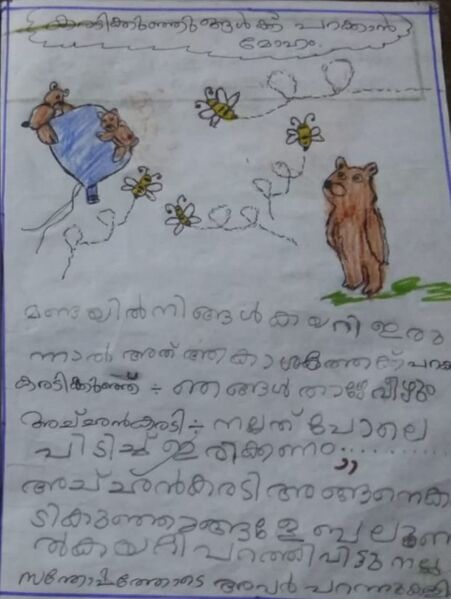 കരടിക്കുഞ്ഞുങ്ങൾക്ക് പറക്കാൻ
മോഹം.
മണ്ടയിൽ നിങ്ങൾ കയറി ഇരു
ന്നാൽ അത് ആകാശത്തേക്ക് പറക്ക
കരടിക്കുഞ്ഞ് ÷ ഞങ്ങൾ താഴേ വീഴും
അച്ഛൻകരടി ÷ നല്ലത് പോലെ
പിടിച്ച് ഇരിക്കണം,,..........
അച്ഛൻകരടി അങ്ങനെക
ടികുഞ്ഞുങ്ങളേ ബലൂണ
ൽ കയറ്റി പറത്തിവിട്ടു നല്ല
സന്തോഷത്തോടെ അവർ പറന്നു